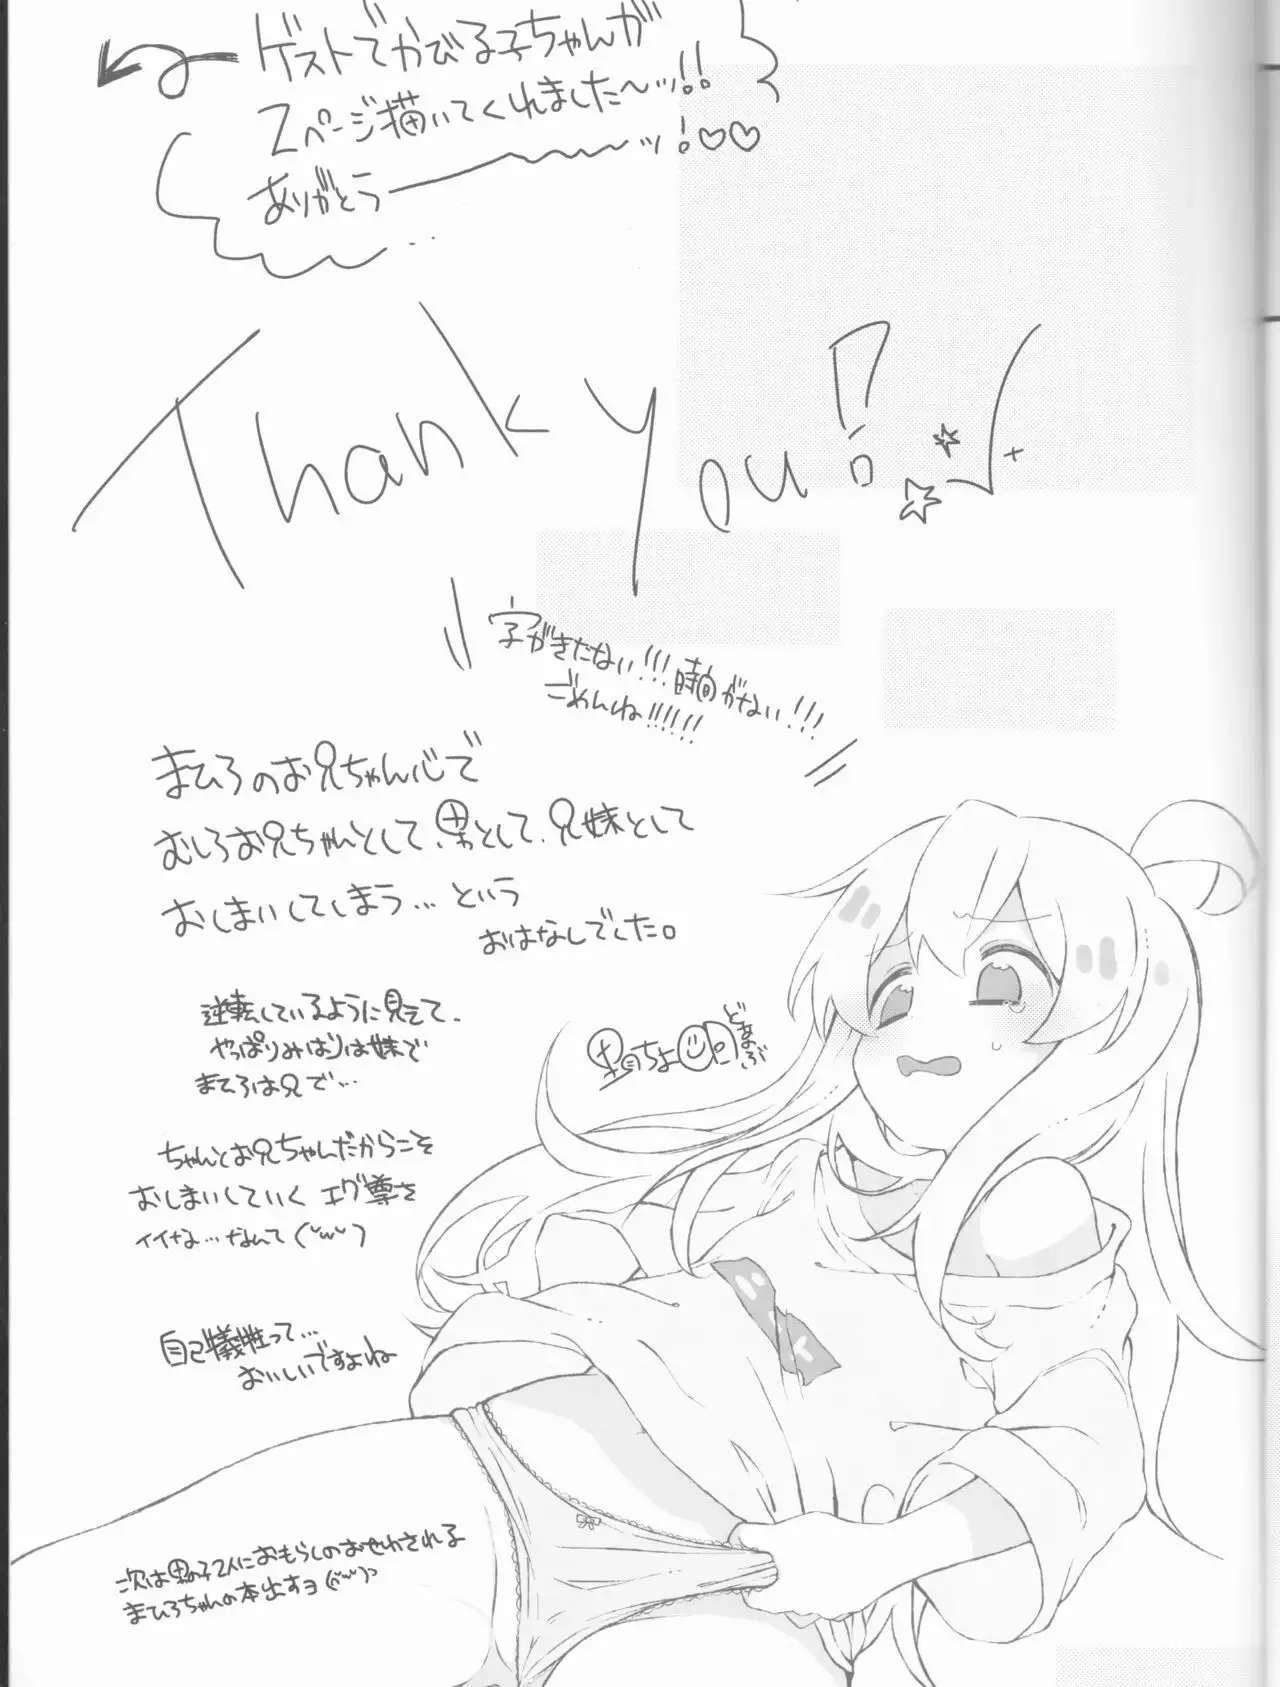 ゲストでかびる子ちゃんが
2ページ描いてくれました〜ッ!!
ありがとう――ッ!♡♡
Thank you!
字がきたない!!!時間がない!!!
ごめんね!!!!!!
まひろのお兄ちゃん心で
むしろお兄ちゃんとして、男として、兄妹として
おしまいしてしまう…という
おはなしでした。
逆転しているように見えて、
やっぱりみはりは妹で
まひろは兄で…
ちゃんとお兄ちゃんだからこそ
おしまいしていく エグ尊さ
イイナぁ…なんて(˘ω˘)
自己犠牲って…
おいしいですよね
次は男の子2人におもらしのおせわされる
まひろちゃんの本出すヨ(˘ω˘)